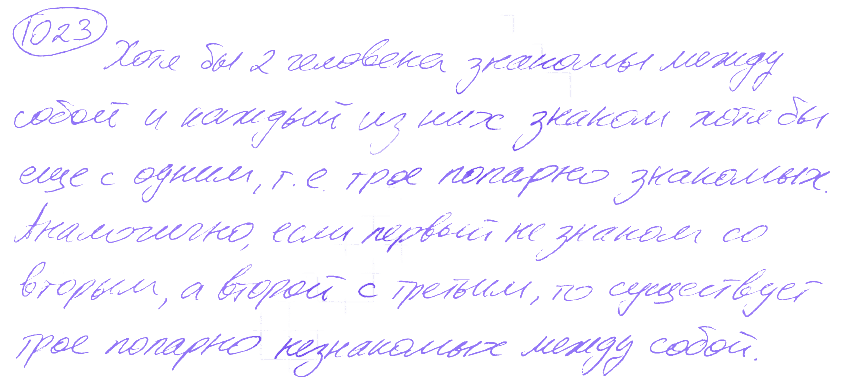 1023
Хотя бы 2 человека знакомы между
собой и каждый из них знаком хотя бы
еще с одним, т.е. трое попарно знакомых.
Аналогично, если первый не знаком со
вторым, а второй с третьим, то существует
трое попарно незнакомых между собой.